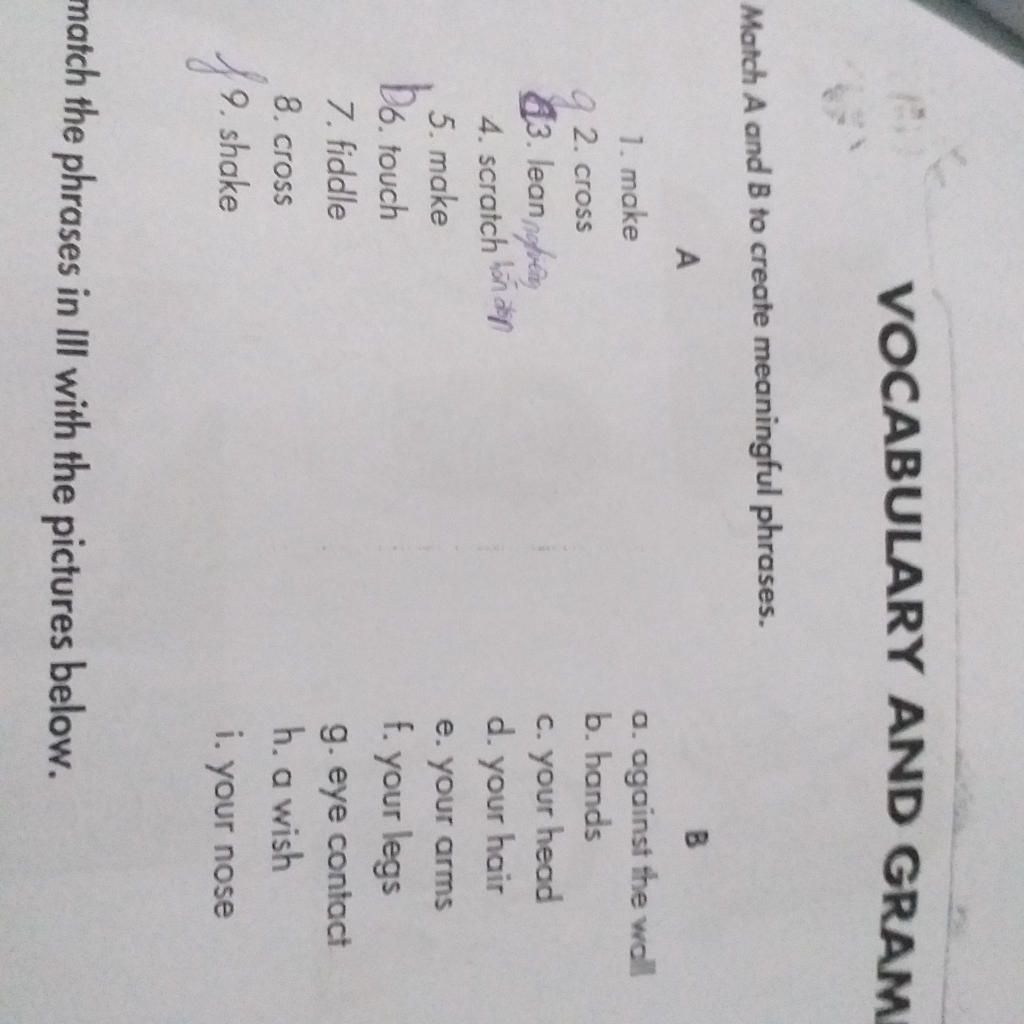 VOCABULARY AND GRAM
Match A and B to create meaningful phrases.
A
B
1. make
a. against the wall
g 2. cross
b. hands
3. lean nghiêng
c. your head
4. scratch
d. your hair
5. make
e. your arms
b 6. touch
f. your legs
7. fiddle
g. eye contact
8. cross
h. a wish
f 9. shake
i. your nose
match the phrases in III with the pictures below.